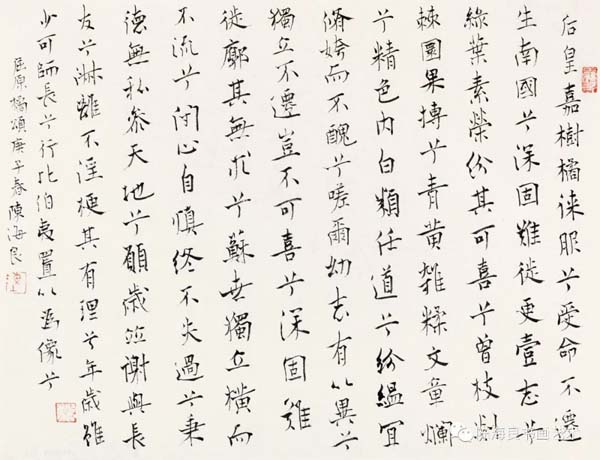 后皇嘉樹橘徠服兮受命不遷
生南國兮深固難徙更壹志兮
綠葉素榮紛其可喜兮曾枝剡
棘圓果摶兮青黃雜糅文章爛
兮精色內白類任道兮紛縕宜
脩姱而不醜兮嗟爾幼志有以異兮
獨立不遷豈不可喜兮深固難
徙廓其無求兮蘇世獨立橫而
不流兮閉心自慎終不失過兮秉
德無私參天地兮願歲並謝與長
友兮淑離不淫梗其有理兮年歲雖
少可師長兮行比伯夷置以為像兮
屈原橘頌庚子春陳海良